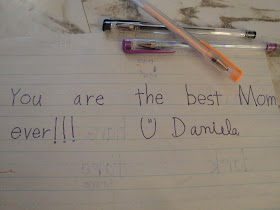 You are the best Mom
ever!!! Daniela